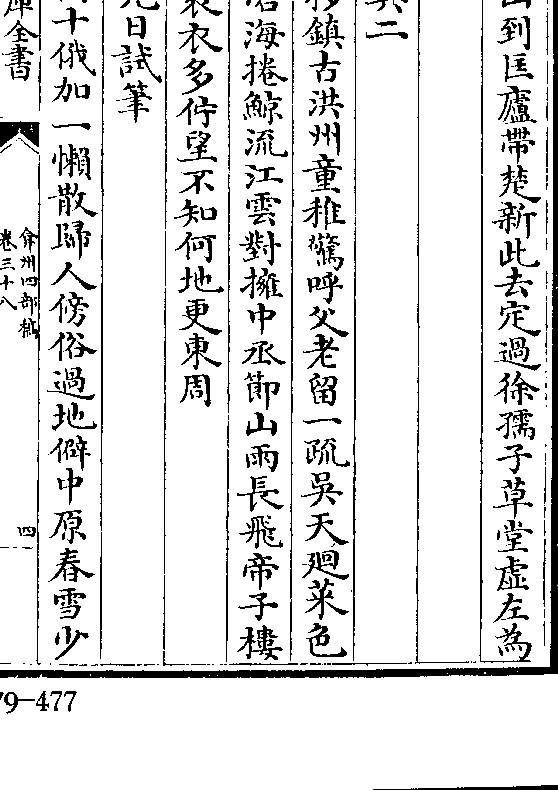 到匡廬帶楚新此去定過徐孺子草堂虛左為
其二
移鎮古洪州童稚驚呼父老留一疏吳天迴菜色
滄海捲鯨流江雲對擁中丞節山雨長飛帝子樓
袞衣多佇望不知何地更東周
元日試筆
十俄加一懶散歸人傍俗過地僻中原春雪少
庫全書
弇州四部稿
卷三十八
四
79-477